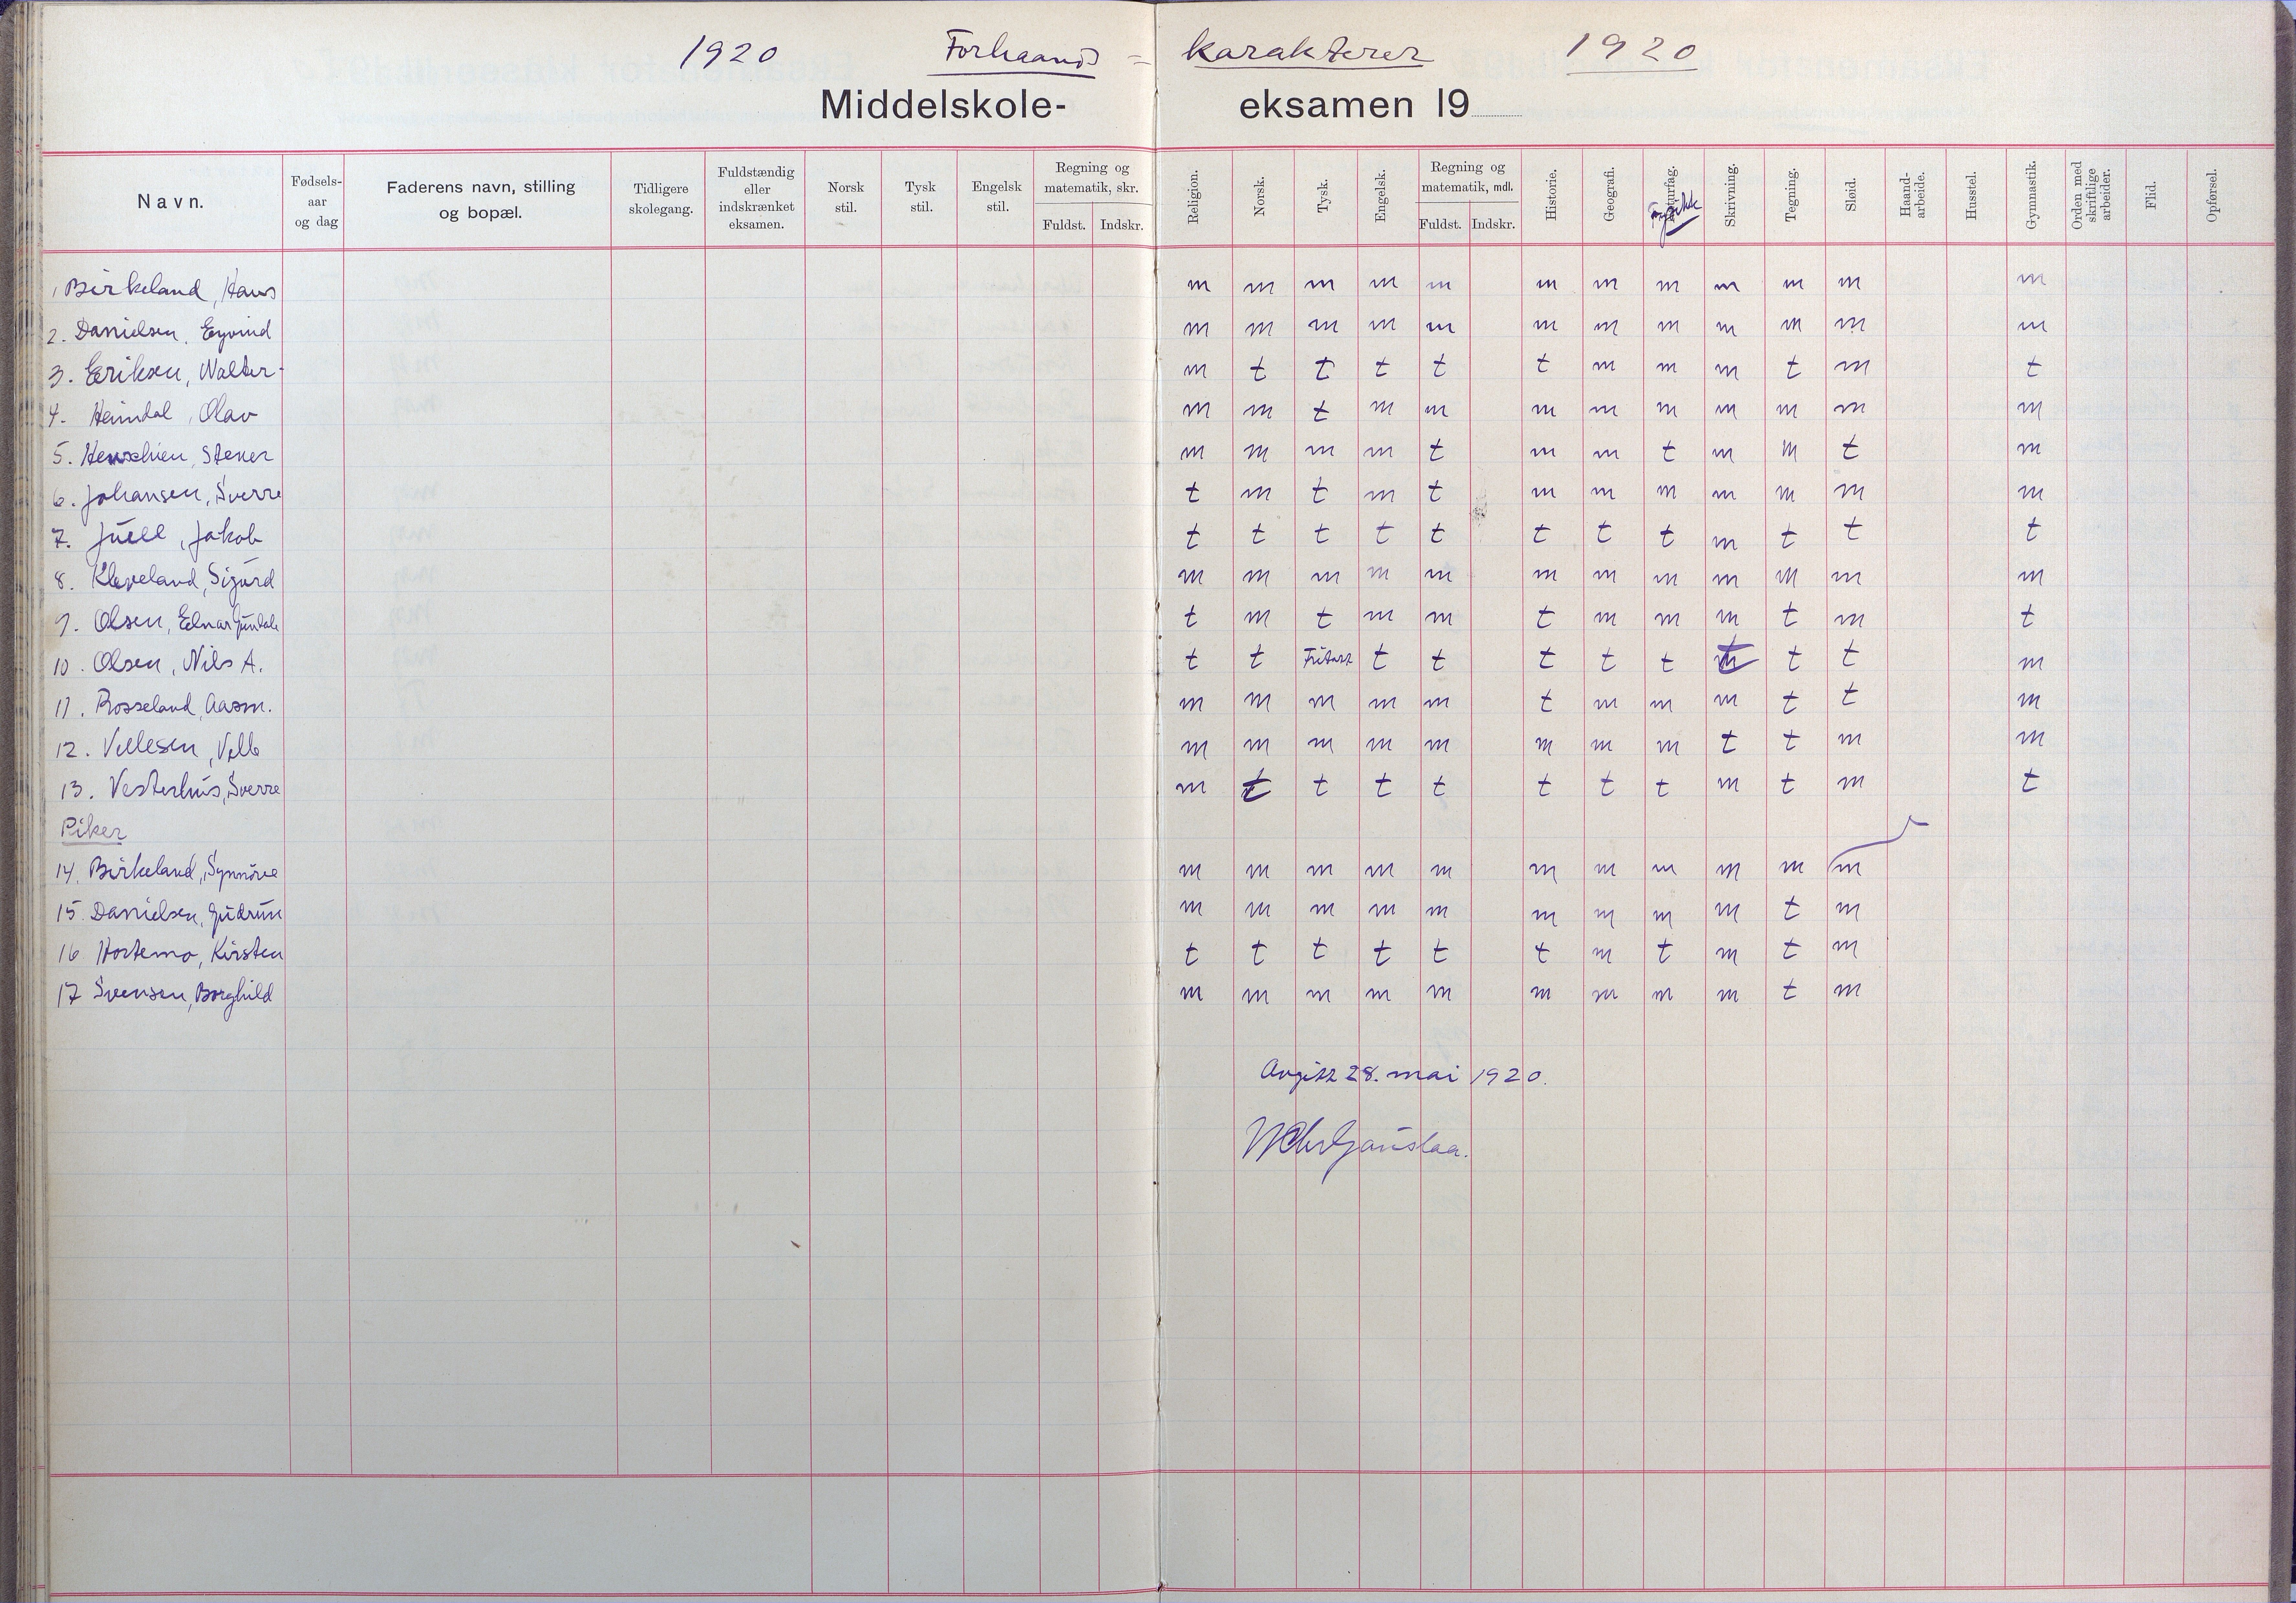 1920 Forhaands = karakterer 1920
Middelskole- eksamen 19
Navn. Fødsels- aar og dag Faderens navn, stilling og bopæl. Tidligere skolegang. Fuldstændig eller indskrænket eksamen. Norsk stil. Tysk stil. Engelsk stil. Regning og matematik, skr. Fuldst. Indskr. Religion. Norsk. Tysk. Engelsk. Regning og matematik, mdl. Fuldst. Indskr. Historie. Geografi. Naturfag. Fysikk Skrivning. Tegning. Sløid. Haand- arbeide. Husstel. Gymnastik. Orden med skriftlige arbeider. Flid. Opførsel.
1 Birkeland, Hans m m m m m m m m m m m m
2. Danielsen, Eyvind m m m m m m m m m m m m
3. Eriksen, Walter m t t t t t m m m t m t
4. Heimdal, Olav m m t m m m m m m m m m
5. Stener m m m m t m m t m m t m
6. Johansen, Sverre t m t m t m m m m m m m
7. Juell, Jakob t t t t t t t t m t t t
8. Kleveland, Sigurd m m m m m m m m m m m m
9. Olsen, Einar t m t m m t m m m t m t
10. Olsen, Nils A. t t Fritatt t t t t t t t t m
11. Rosseland, Aasm. m m m m m t m m m t t m
12. Vellesen, m m m m m m m m t t m m
13. Vesterhus, Sverre m t t t t t t t m t m t
Piker
14. Birkeland, Synnöve m m m m m m m m m m m
15. Danielsen, Gudrun m m m m m m m m m t m
16 Hortemo, Kirsten t t t t t t m t m t m
17 Svensen, Borghild m m m m m m m m m t m
Avgitt 28. mai 1920.